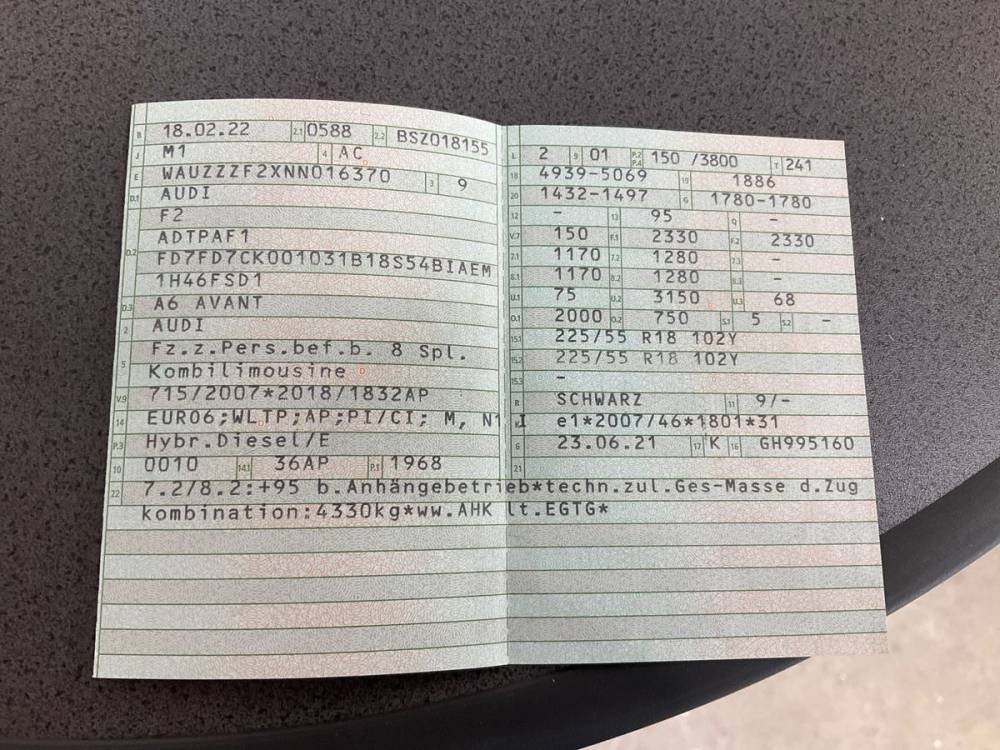 B 18.02.22 2.1 0588 2.2 BSZ018155
J M1 4 AC
E WAUZZZF2XNN016370 3 9
D.1 AUDI
F2
D.2 ADTPAF1
FD7FD7CK001031B18S54BIAEM
1H46FSD1
D.3 A6 AVANT
2 AUDI
5 Fz.z.Pers.bef.b. 8 Spl.
Kombilimousine
V.9 715/2007*2018/1832AP
14 EURO6;WLTP;AP;PI/CI; M, N1 I
P.3 Hybr.Diesel/E
10 0010 14.1 36AP P.1 1968
L 2 9 01 P.2 P.4 150 /3800 T 241
18 4939-5069 19 1886
20 1432-1497 G 1780-1780
12 - 13 95 Q -
V.7 150 F.1 2330 F.2 2330
7.1 1170 7.2 1280 7.3 -
8.1 1170 8.2 1280 8.3 -
U.1 75 U.2 3150 U.3 68
O.1 2000 O.2 750 S.1 5 S.2 -
15.1 225/55 R18 102Y
15.2 225/55 R18 102Y
15.3 -
R SCHWARZ 11 9/-
K e1*2007/46*1801*31
6 23.06.21 17 K 16 GH995160
21
22 7.2/8.2:+95 b.Anhängebetrieb*techn.zul.Ges-Masse d.Zug
kombination:4330kg*ww.AHK lt.EGTG*